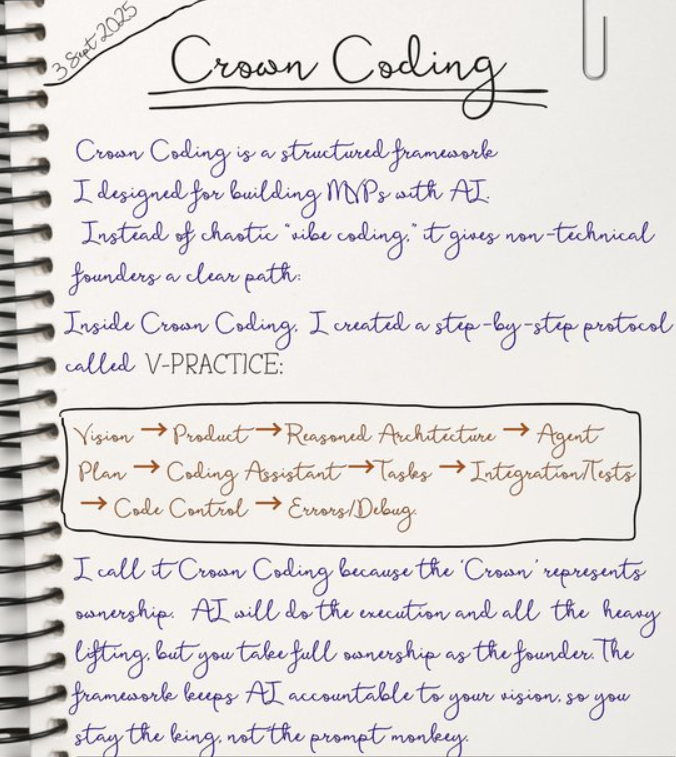 3 Sept 2025
Crown Coding
Crown Coding is a structured framework
I designed for building MVPs with AI.
Instead of chaotic "vibe coding," it gives non-technical
founders a clear path:
Inside Crown Coding, I created a step-by-step protocol
called V-PRACTICE:
Vision → Product → Reasoned Architecture → Agent
Plan → Coding Assistant → Tasks → Integration/Tests
→ Code Control → Errors/Debug.
I call it Crown Coding because the 'Crown' represents
ownership. AI will do the execution and all the heavy
lifting, but you take full ownership as the founder. The
framework keeps AI accountable to your vision, so you
stay the king, not the prompt monkey.